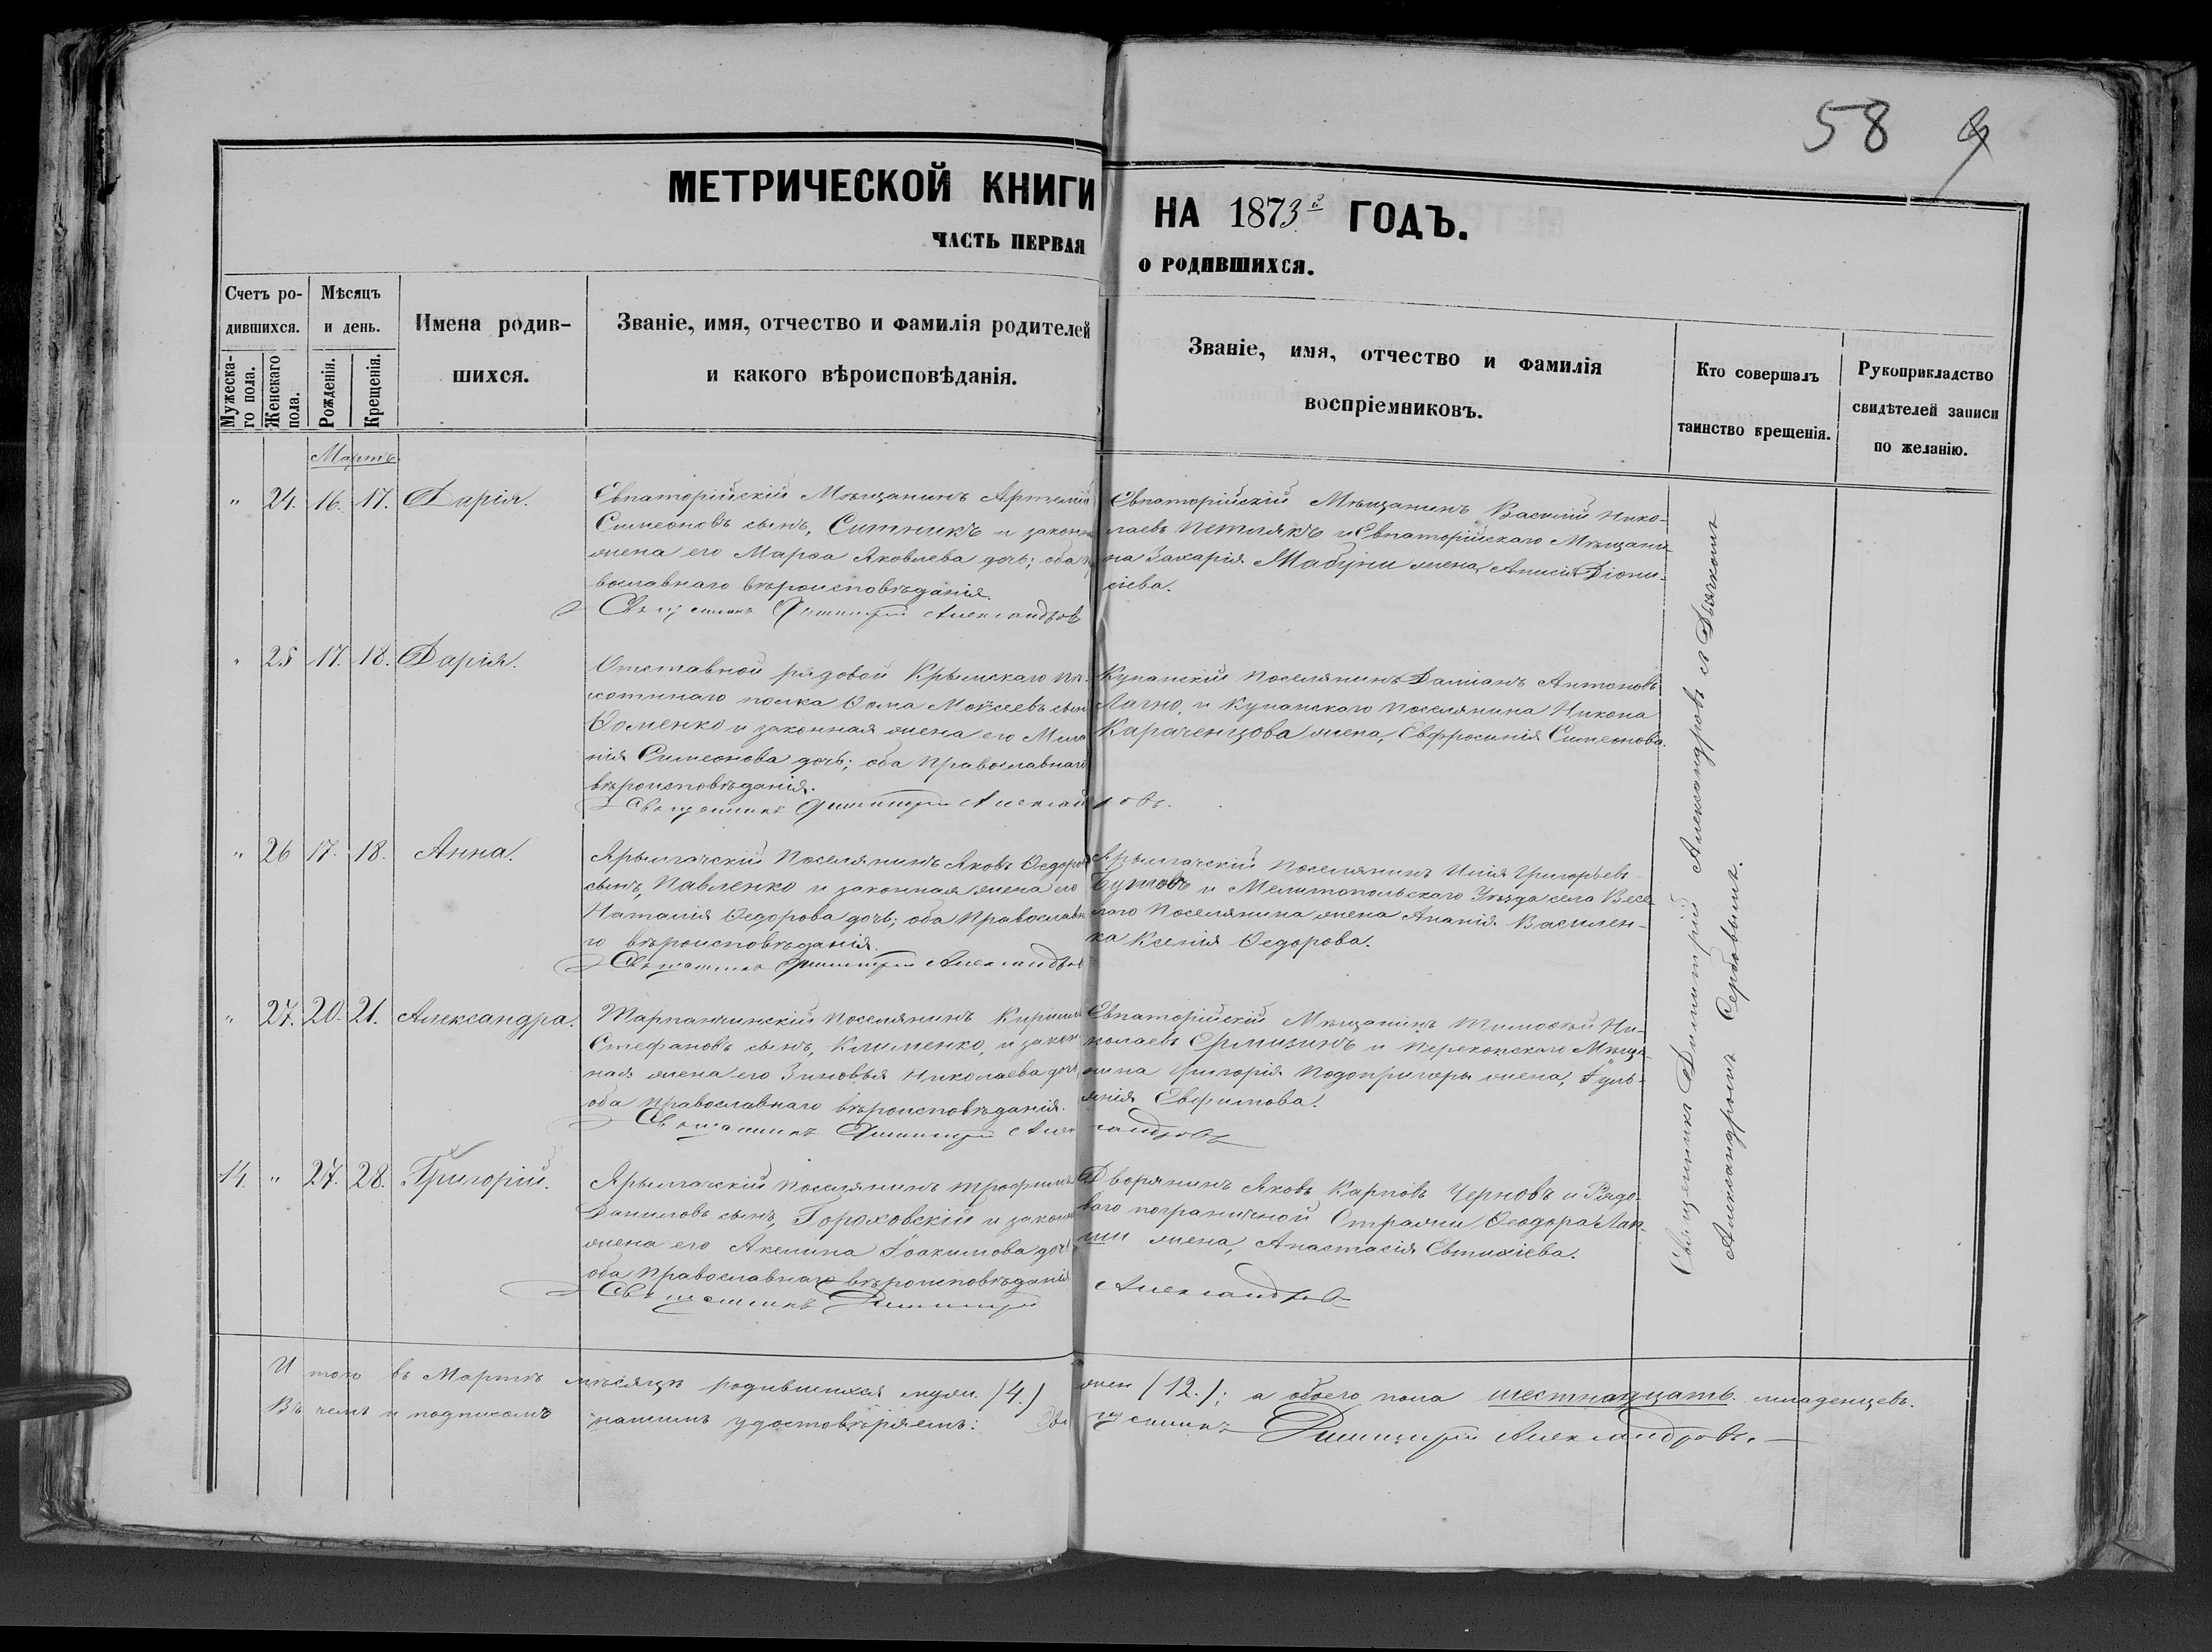 58 9
МЕТРИЧЕСКОЙ КНИГИ НА 1873й ГОДЪ.
ЧАСТЬ ПЕРВАЯ О РОДИВШИХСЯ.
Счетъ ро-
дившихся.
Мужеска-
го пола.
Женскаго
пола.
Мѣсяцъ
и день.
Рожденія.
Крещенія.
Имена родив-
шихся.
Званіе, имя, отчество и фамилія родителей
и какого вѣроисповѣданія.
Званіе, имя, отчество и фамилія
воспріемниковъ.
Кто совершалъ
таинство крещенія.
Рукоприкладство
свидѣтелей записи
по желанію.
Мартъ.
" 24. 16. 17. Дарія.
Евпаторійскій Мѣщанинъ Артемій
Симеоновъ сынъ, Ситникъ и законн
жена его Марѳа Яковлева дочь; оба п
вославнаго вѣроисповѣданія.
Священникъ Димитрій Александров
Евпаторійскій Мѣщанинъ Василій Нико-
лаевъ Петлякъ и Евпаторійскаго Мѣщани
на Захарія Мабуни жена, Анисія Діони-
сіева.
" 25 17. 18. Дарія.
Отставной рядовой Крымскаго пѣ-
хотнаго полка Ѳома Моѵсеевъ сын
Ѳоменко и законная жена его Мела
нія Симеонова дочь; оба Православнаго
вѣроисповѣданія.
Священникъ Димитрій Александровъ.
Кунанскій поселянинъ Даміанъ Антоновъ
Лагно, и Кунанскаго поселянина Никона
Караченцова жена, Евфросинія Симеонова.
" 26 17. 18. Анна.
Ярылгачскій поселянинъ Яковъ Ѳедоров
сынъ, Павленко и законная жена его
Наталія Ѳедорова дочь; оба Православн
го вѣроисповѣданія.
Священникъ Димитрій Александров
Ярылгачскій поселянинъ Илія Григорьевъ
Бутовъ и Мелитопольскаго Уѣзда села Весе
лаго поселянина жена Ананія Василен-
ка Ксенія Ѳедорова.
" 27. 20. 21. Александра.
Тарпанчинскій поселянинъ Кирилл
Стефановъ сынъ, Клименко, и закон
ная жена его Зиновья Николаева дочь,
оба православнаго вѣроисповѣданія.
Священникъ Димитрій Александровъ
Евпаторійскій Мѣщанинъ Тимоѳей Ни-
колаевъ Ермизинъ и Перекопскаго Мѣща-
нина Григорія Подопригоры жена, Іуль-
янія Евфимова.
14. " 27. 28. Григорій.
Ярылгачскій поселянинъ Трофимъ
Даниловъ сынъ, Гороховскій и законн
жена его Акелина Іоакимова дочь
оба Православнаго вѣроисповѣданія
Священникъ Димитрій Александровъ
Дворянинъ Яковъ Карповъ Черновъ и Рядо-
ваго пограничной Стражи Ѳеодора Лап-
ши жена, Анастасія Евтихіева.
Священникъ Димитрій Александровъ съ Дьячкомъ
Александромъ Сербовымъ.
Итого въ Мартѣ мѣсяцѣ родившихся муж. (4.) жен (12.); а обоего пола шестнадцать младенцевъ.
Въ чемъ и подписомъ нашимъ удостовѣряемъ: Священникъ Димитрій Александровъ.